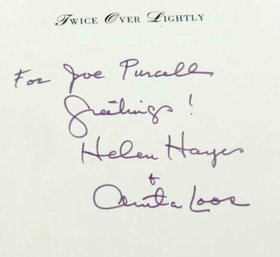 TWICE OVER LIGHTLY
For Joe Purcell
Greetings!
Helen Hayes
+
Anita Loos